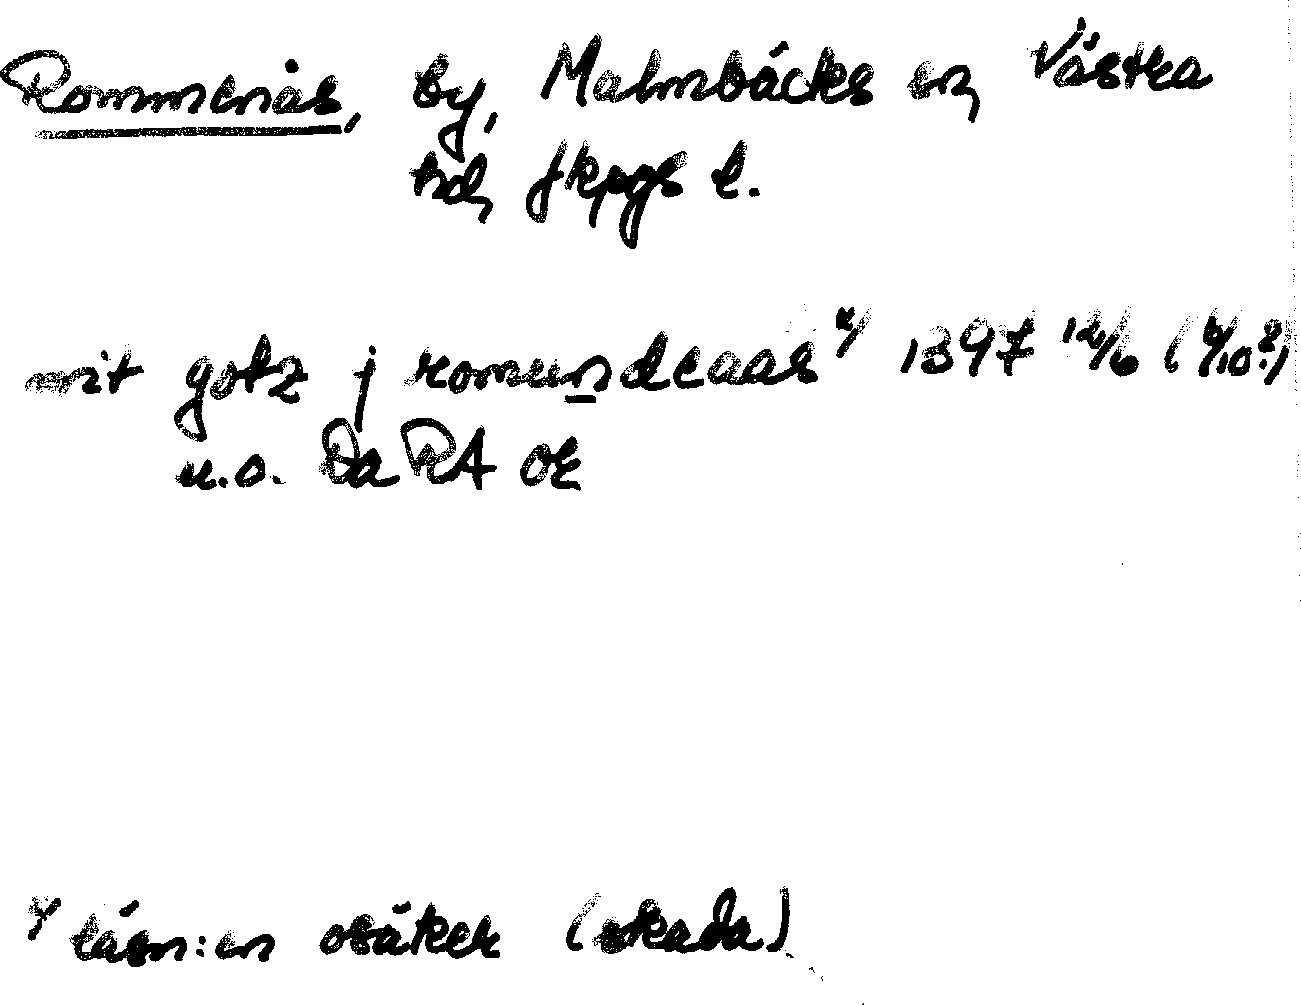 Rommenås, by, Malmbäcks sn, Västra
hd, Jkpgs l.
mit gotz j romundeaas x/ 1397 12/6 (6/10?)
u.o. Da RA or
x/ läsn:en osäker (skada)